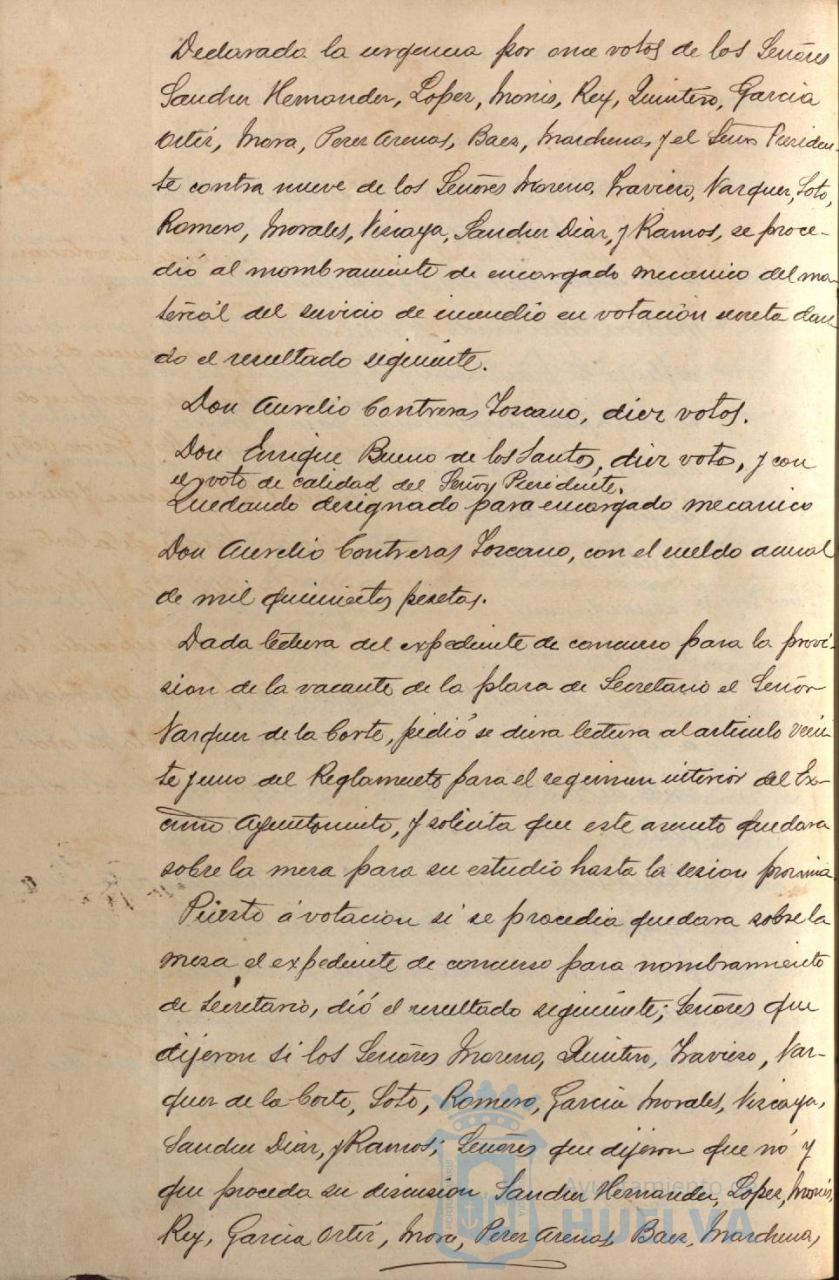 Declarada la urgencia por once votos de los Señores
Sanchez Hernandez, Lopez, Monis, Rey, Quintero, Garcia
Ortiz, Mora, Perez Arenas, Baez, Marchena, y el Señor Presiden-
te contra nueve de los Señores Moreno, Travieso, Vazquez, Soto,
Romero, Morales, Viscaya, Sanchez Diaz, y Ramos, se proce-
dió al nombramiento de encargado mecanico del ma-
terial del servicio de incendio en votación secreta dan
do el resultado siguiente.
Don Aurelio Contreras Toscano, diez votos.
Don Enrique Bueno de los Santos, diez votos, y con
el voto de calidad del Señor Presidente.
Quedando designado para encargado mecanico
Don Aurelio Contreras Toscano, con el sueldo anual
de mil quinientas pesetas.
Dada lectura del expediente de concurso para la provi-
sion de la vacante de la plaza de Secretario el Señor
Vazquez de la Corte, pidió se diera lectura al articulo vein
te y uno del Reglamento para el regimen interior del Ex-
cmo Ayuntamiento, y solicita que este asunto quedara
sobre la mesa para su estudio hasta la sesion proxima
Puesto á votacion si se procedia quedara sobre la
mesa el expediente de concurso para nombramiento
de Secretario, dió el resultado siguiente; Señores que
dijeron si los Señores Moreno, Quintero, Travieso, Vaz-
quez de la Corte, Soto, Romero, Garcia Morales, Viscaya,
Sanchez Diaz, y Ramos; Señores que dijeron que nó y
que proceda su discusion Sanchez Hernandez, Lopez, Monis,
Rey, Garcia Ortiz, Mora, Perez Arenas, Baez, Marchena,
Ayuntamiento de
HUELVA